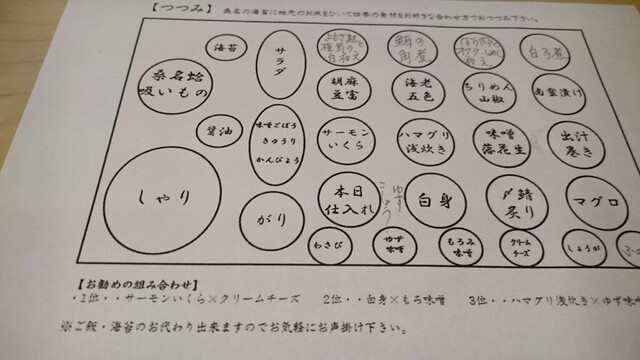 【つつみ】 桑名の海苔に地元のお米をひいて四季の食材をお好きな合わせ方でおつつみ下さい。
海苔
サラダ
よもぎ麩と
白和え
鮪の
角煮
白子煮
桑名蛤
吸いもの
胡麻
豆富
海老
五色
ちりめん
山椒
醤油
味噌ごぼう
きゅうり
かんぴょう
サーモン
いくら
ハマグリ
浅炊き
味噌
落花生
出汁
巻き
しゃり
がり
本日
仕入れ
ゆず
こしょう
白身
〆鯖
炙り
マグロ
わさび
ゆず
味噌
もろみ
味噌
クリーム
チーズ
しょうが
【お勧めの組み合わせ】
・1位・・サーモンいくら×クリームチーズ 2位・・白身×もろ味噌 3位・・ハマグリ浅炊き×ゆず味噌
※ご飯・海苔のお代わり出来ますのでお気軽にお声掛け下さい。